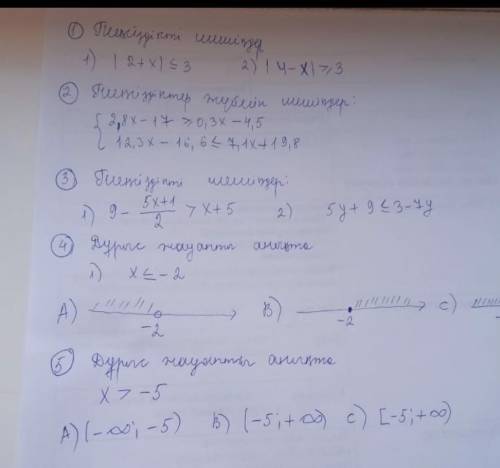 ① Теңсіздікті шешіңдер
1) |2+x| ≤ 3 2) |4-x| ≥ 3
② Теңсіздіктер жүйесін шешіңдер:
{ 2,8x-17 ≥ 0,3x-4,5
12,3x-16,6 ≤ 7,1x+19,8
③ Теңсіздікті шешіңдер:
1) 9 - (5x+1)/2 > x+5 2) 5y+9 ≤ 3-7y
④ Дұрыс жауапты анықта
1) x ≤ -2
A) B) C)
-2 -2
⑤ Дұрыс жауапты анықта
x > -5
A) (-∞; -5) B) (-5; +∞) C) [-5; +∞)